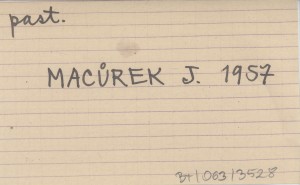 past.
MACŮREK J. 1957
3+1/063/3528